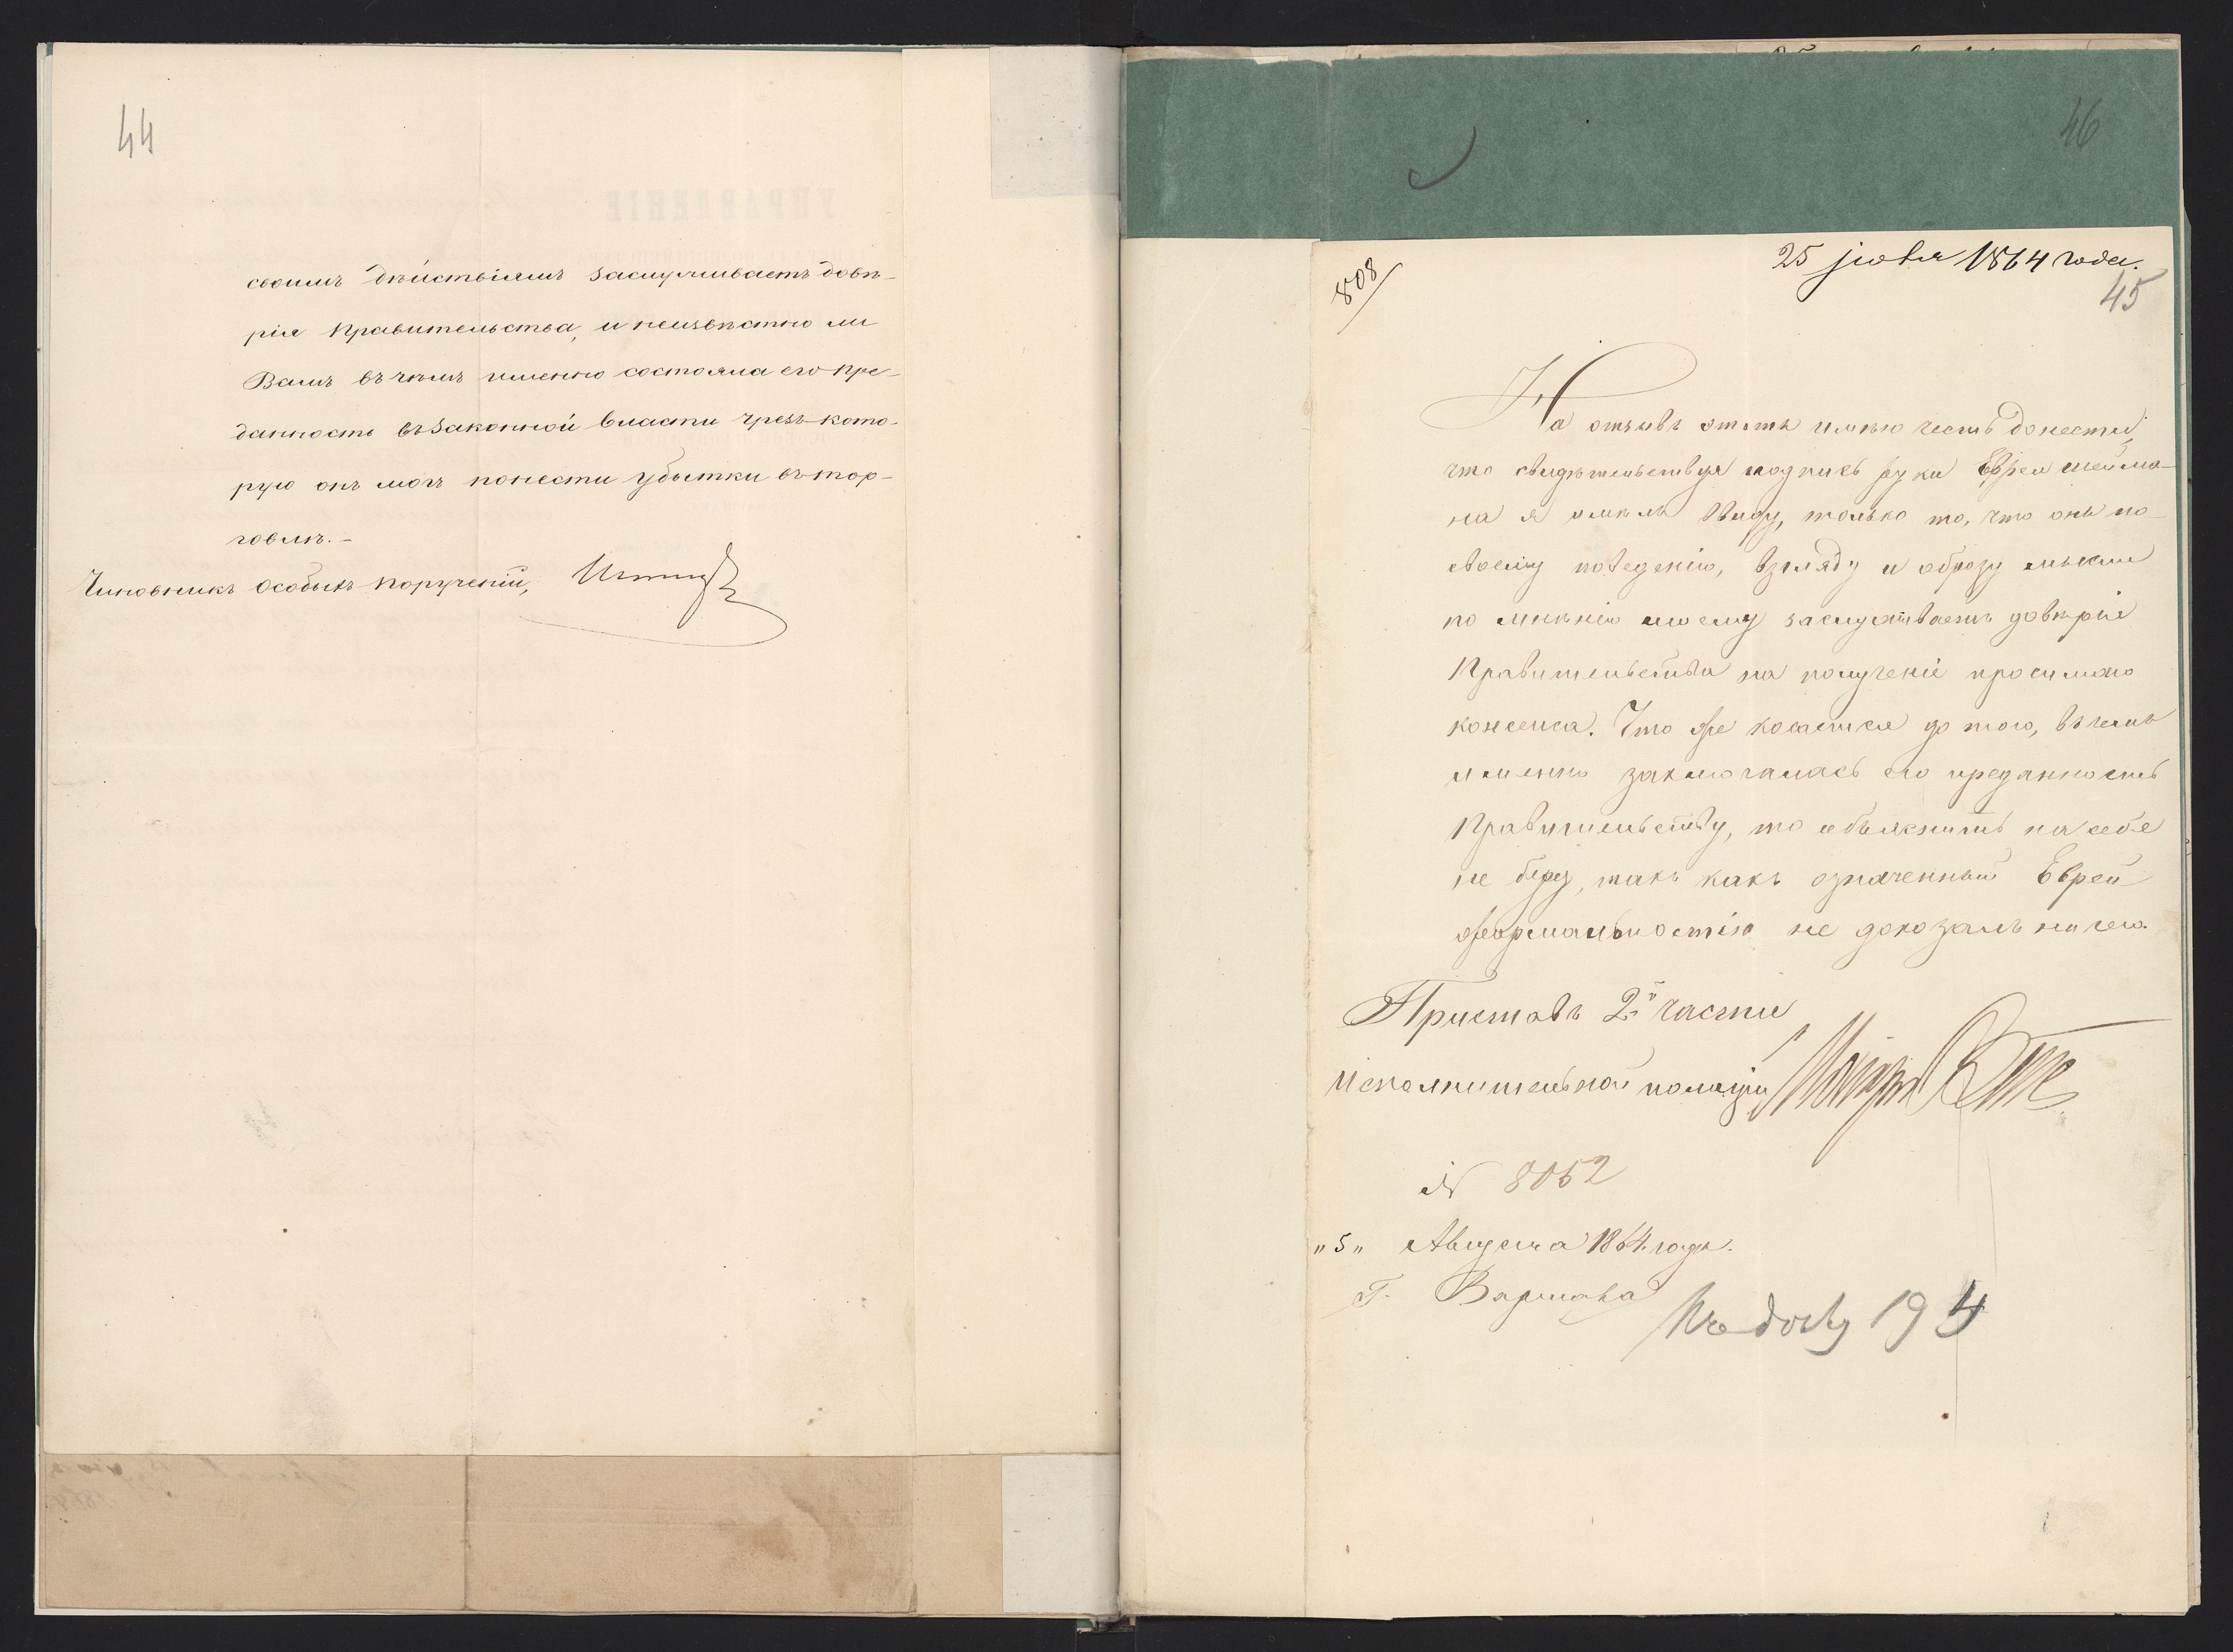 44
своимъ дѣйствіямъ заслуживаетъ довѣ-
рія Правительства, и неизвѣстно ли
Вамъ въ чѣмъ именно состояла его пре-
данность въ законной власти чрезъ кото-
рую онъ могъ понести убытки въ тор-
говлѣ.-
Чиновникъ особыхъ порученій,
46
808
25 Июля 1864 года.
45
На отзывъ этотъ имѣю честь донести,
что свидѣтельствуя подпись руки Еврея Шейма-
на я имѣлъ ввиду, только то, что онъ по
своему поведенію, взгляду и образу мысли
по мнѣнію моему заслуживаетъ довѣрія
Правительства на полученіе просимаго
консенса. Что же касается до того, въ чемъ
именно заключалась его преданность
Правительству, то объяснить на себя
не беру, такъ какъ означенный Еврей
формальностію не доказалъ ничего.
Приставъ 2й части
Исполнительной полиціи Маіоръ
№ 8052
"5" Августа 1864 года.
Г. Варшава
194